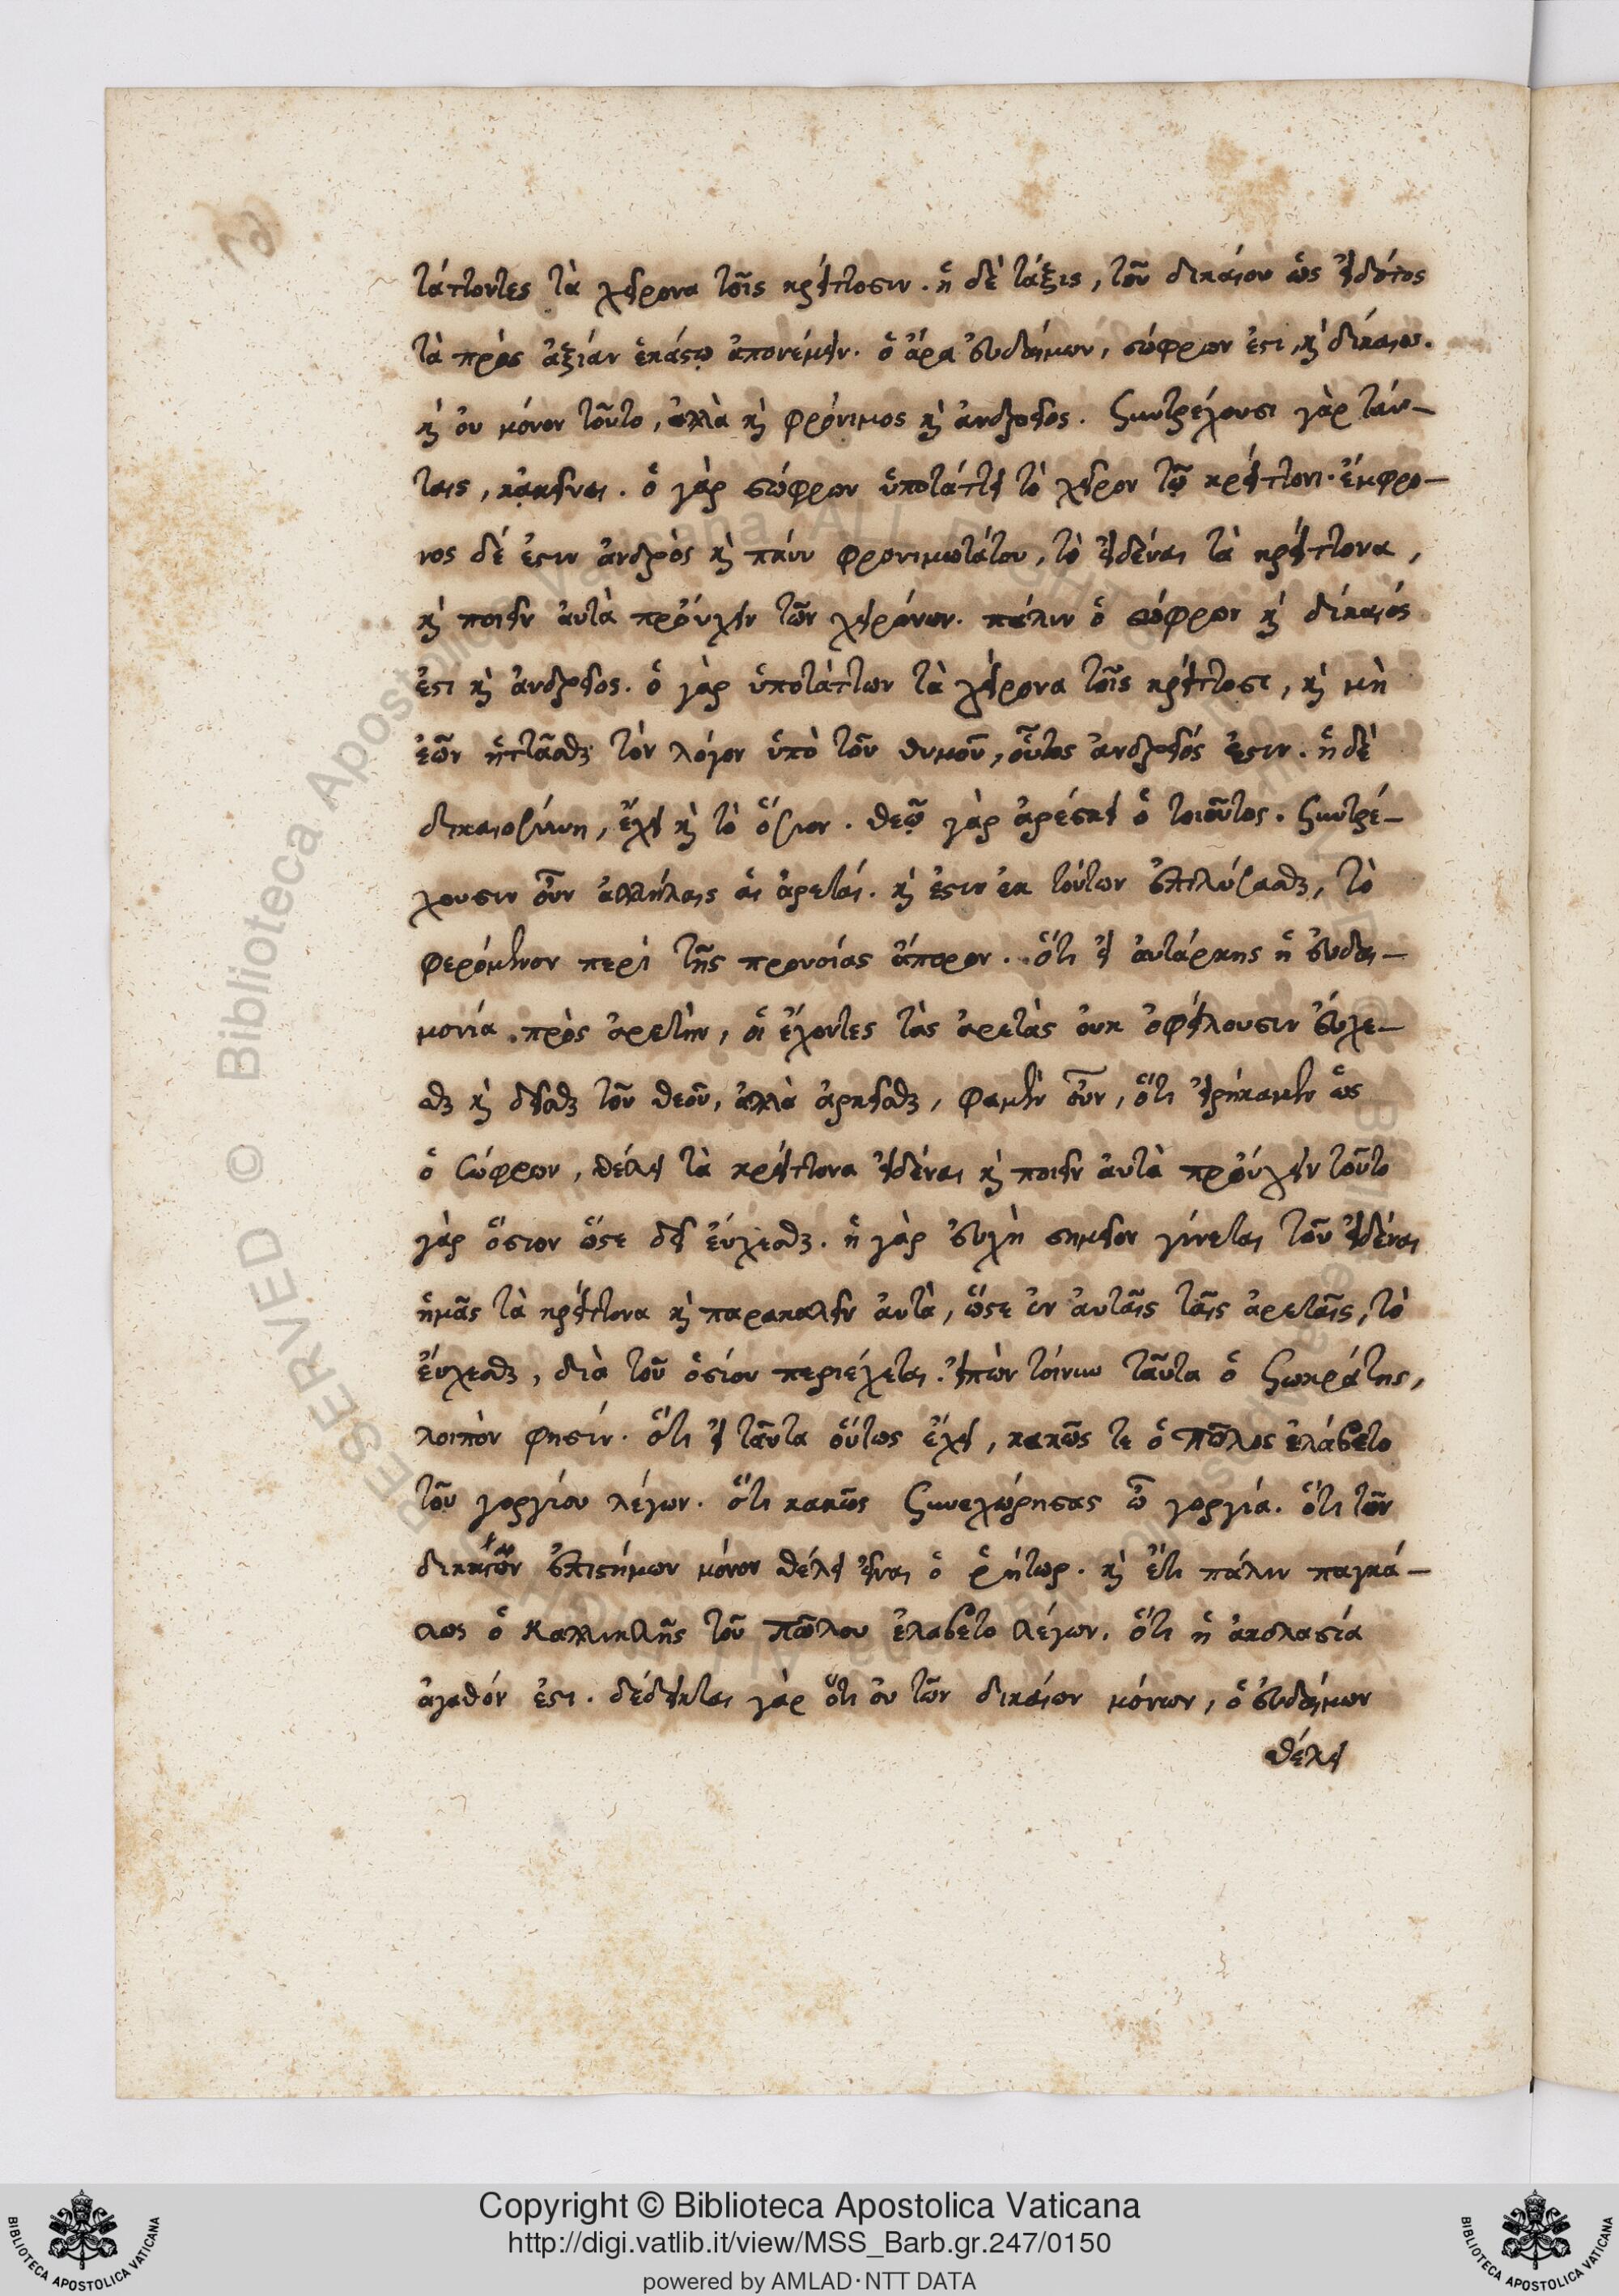 τάττοντες τὰ χείρονα τοῖς κρείττοσιν. ἡ δὲ τάξις, τοῦ δικαίου ὡς εἰδότος
τὰ πρὸς ἀξίαν ἑκάστῳ ἀπονέμειν. ὁ ἄρα εὐδαίμων, σώφρων ἐστι, καὶ δίκαιος.
καὶ οὐ μόνον τοῦτο, ἀλλὰ καὶ φρόνιμος καὶ ἀνδρεῖος. συντρέχουσι γὰρ ταύ-
ταις, κἀκεῖναι. ὁ γὰρ σώφρων ὑποτάττει τὸ χεῖρον τῷ κρείττονι. ἔμφρο-
νος δέ ἐστιν ἀνδρὸς καὶ πάνυ φρονιμωτάτου, τὸ εἰδέναι τὰ κρείττονα,
καὶ ποιεῖν αὐτὰ προὔχειν τῶν χειρόνων. πάλιν ὁ σώφρων καὶ δίκαιός
ἐστι καὶ ἀνδρεῖος. ὁ γὰρ ὑποτάττων τὰ χείρονα τοῖς κρείττοσι, καὶ μὴ
ἐῶν ἡττᾶσθαι τὸν λόγον ὑπὸ τοῦ θυμοῦ, οὗτος ἀνδρεῖός ἐστιν. ἡ δὲ
δικαιοσύνη, ἔχει καὶ τὸ ὅσιον. θεῷ γὰρ ἀρέσκει ὁ τοιοῦτος. συντρέ-
χουσιν οὖν ἀλλήλαις αἱ ἀρεταί. καὶ ἔστιν ἐκ τούτων ἐπιλύσασθαι, τὸ
φερόμενον περὶ τῆς προνοίας ἄπορον. ὅτι εἰ αὐτάρκης ἡ εὐδαι-
μονία πρὸς ἀρετὴν, οἱ ἔχοντες τὰς ἀρετὰς οὐκ ὀφείλουσιν εὔχε-
σθαι καὶ δεῖσθαι τοῦ θεοῦ, ἀλλὰ ἀρκεῖσθαι, φαμὲν οὖν, ὅτι εἰρήκαμεν ὡς
ὁ σώφρων, θέλει τὰ κρείττονα εἰδέναι καὶ ποιεῖν αὐτὰ προὔχειν τοῦτο
γὰρ ὅσιον ὥστε δεῖ εὔχεσθαι. ἡ γὰρ εὐχὴ σημεῖον γίνεται τοῦ εἰδέναι
ἡμᾶς τὰ κρείττονα καὶ παρακαλεῖν αὐτὰ, ὥστε ἐν αὐταῖς ταῖς ἀρεταῖς, τὸ
εὔχεσθαι, διὰ τοῦ ὁσίου περιέχεται. εἰπὼν τοίνυν ταῦτα ὁ Σωκράτης,
λοιπὸν φησίν. ὅτι εἰ ταῦτα οὕτως ἔχει, κακῶς τε ὁ πῶλος ἐλάβετο
τοῦ γοργίου λέγων. ὅτι κακῶς συνεχώρησας ὦ γοργία. ὅτι τῶν
δικαίων ἐπιστήμων μόνον θέλει εἶναι ὁ ῥήτωρ. καὶ ἔτι πάλιν παγκά-
λως ὁ Καλλικλῆς τοῦ πώλου ἐλάβετο λέγων. ὅτι ἡ ἀκολασία
ἀγαθόν ἐστι. δέδεικται γὰρ ὅτι οὐ τῶν δικαίων μόνων, ὁ εὐδαίμων
θέλει
Copyright © Biblioteca Apostolica Vaticana
http://digi.vatlib.it/view/MSS_Barb.gr.247/0150
powered by AMLAD·NTT DATA